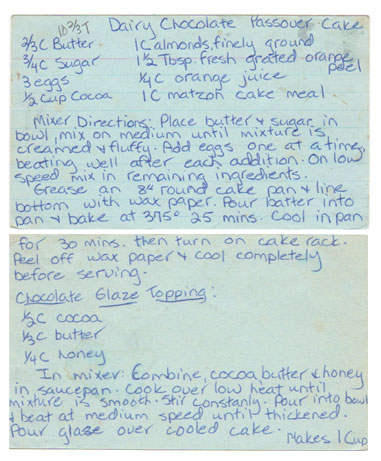 10 2/3 T Dairy Chocolate Passover Cake
2/3 C Butter 1C almonds, finely ground
3/4 C Sugar 1 1/2 Tbsp. fresh grated orange peel
3 eggs 1/4 C orange juice
1/2 Cup Cocoa 1C matzoh cake meal
Mixer Directions: Place butter & sugar in
bowl, mix on medium until mixture is
creamed & fluffy. Add eggs one at a time,
beating well after each addition. On low
speed mix in remaining ingredients.
Grease an 8" round cake pan & line
bottom with wax paper. Pour batter into
pan & bake at 375° 25 mins. Cool in pan
for 30 mins. then turn on cake rack.
Peel off wax paper & cool completely
before serving.
Chocolate Glaze Topping:
1/2 C cocoa
1/3 C butter
1/4 C honey
In mixer: Combine, cocoa, butter & honey
in saucepan. Cook over low heat until
mixture is smooth. Stir constanly. Pour into bowl
& beat at medium speed until thickened.
Pour glaze over cooled cake.
Makes 1 Cup